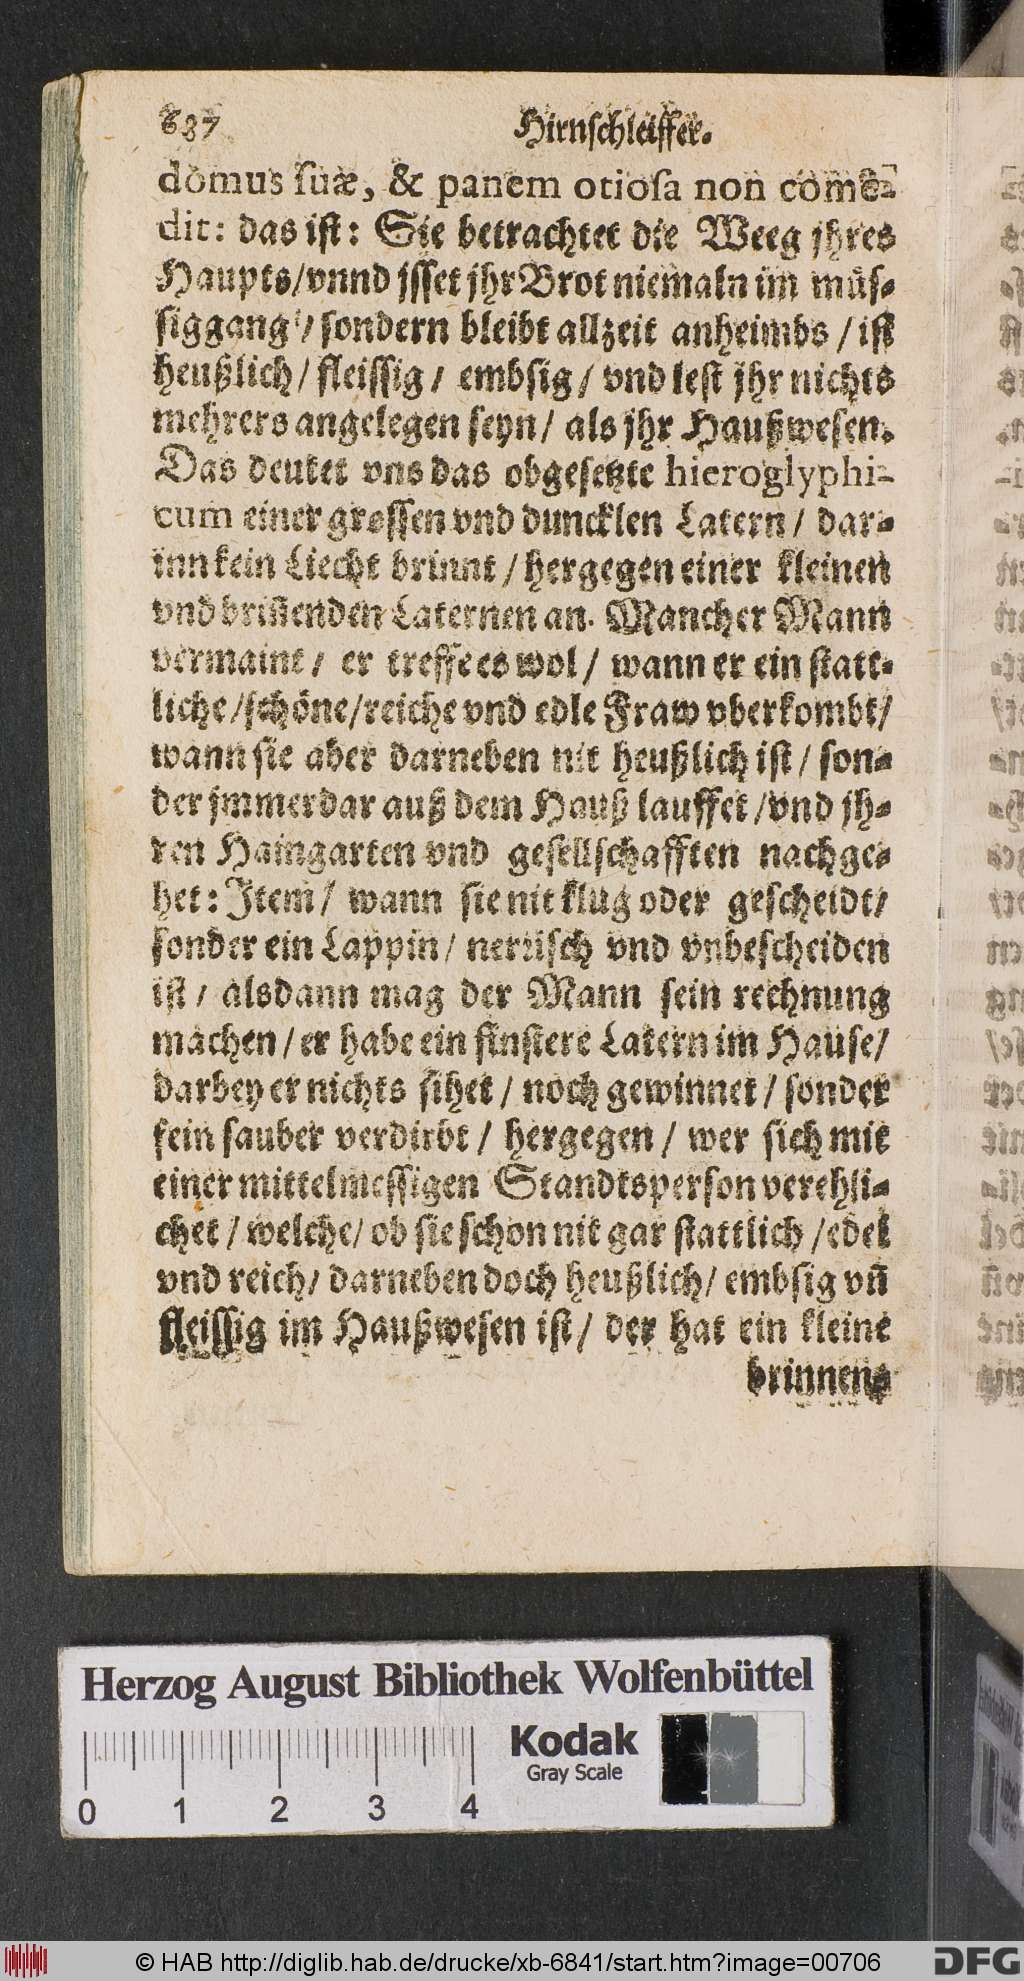 637 Hirnschleiffer.
domus suæ, & panem otiosa non comē-
dit: das ist: Sie betrachtet die Weeg jhres
Haupts/vnnd jsset jhr Brot niemaln im müs-
siggang/sondern bleibt allzeit anheimbs / ist
heußlich/ fleissig/ embsig/ vnd lest jhr nichts
mehrers angelegen seyn/ als jhr Haußwesen.
Das deutet vns das obgesetzte hieroglyphi-
cum einer grossen vnd duncklen Latern/ dar-
inn kein Liecht brinnt / hergegen einer kleinen
vnd briñenden Laternen an. Mancher Mann
vermaint/ er treffe es wol/ wann er ein statt-
liche/schöne/reiche vnd edle Fraw vberkombt/
wann sie aber darneben nit heußlich ist/ son-
der jmmerdar auß dem Hauß lauffet /vnd jh-
ren Haingarten vnd gesellschafften nachge-
het: Item/ wann sie nit klug oder gescheidt/
sonder ein Lappin/ nerrisch vnd vnbescheiden
ist / alsdann mag der Mann sein rechnung
machen / er habe ein finstere Latern im Hause/
darbey er nichts sihet / noch gewinnet / sonder
fein sauber verdirbt / hergegen / wer sich mit
einer mittelmessigen Standtsperson verehli-
chet / welche/ ob sie schon nit gar stattlich /edel
vnd reich/ darneben doch heußlich/ embsig vñ
fleissig im Haußwesen ist/ der hat ein kleine
brinnen-
Herzog August Bibliothek Wolfenbüttel
Kodak
Gray Scale
0 1 2 3 4
© HAB http://diglib.hab.de/drucke/xb-6841/start.htm?image=00706
DFG